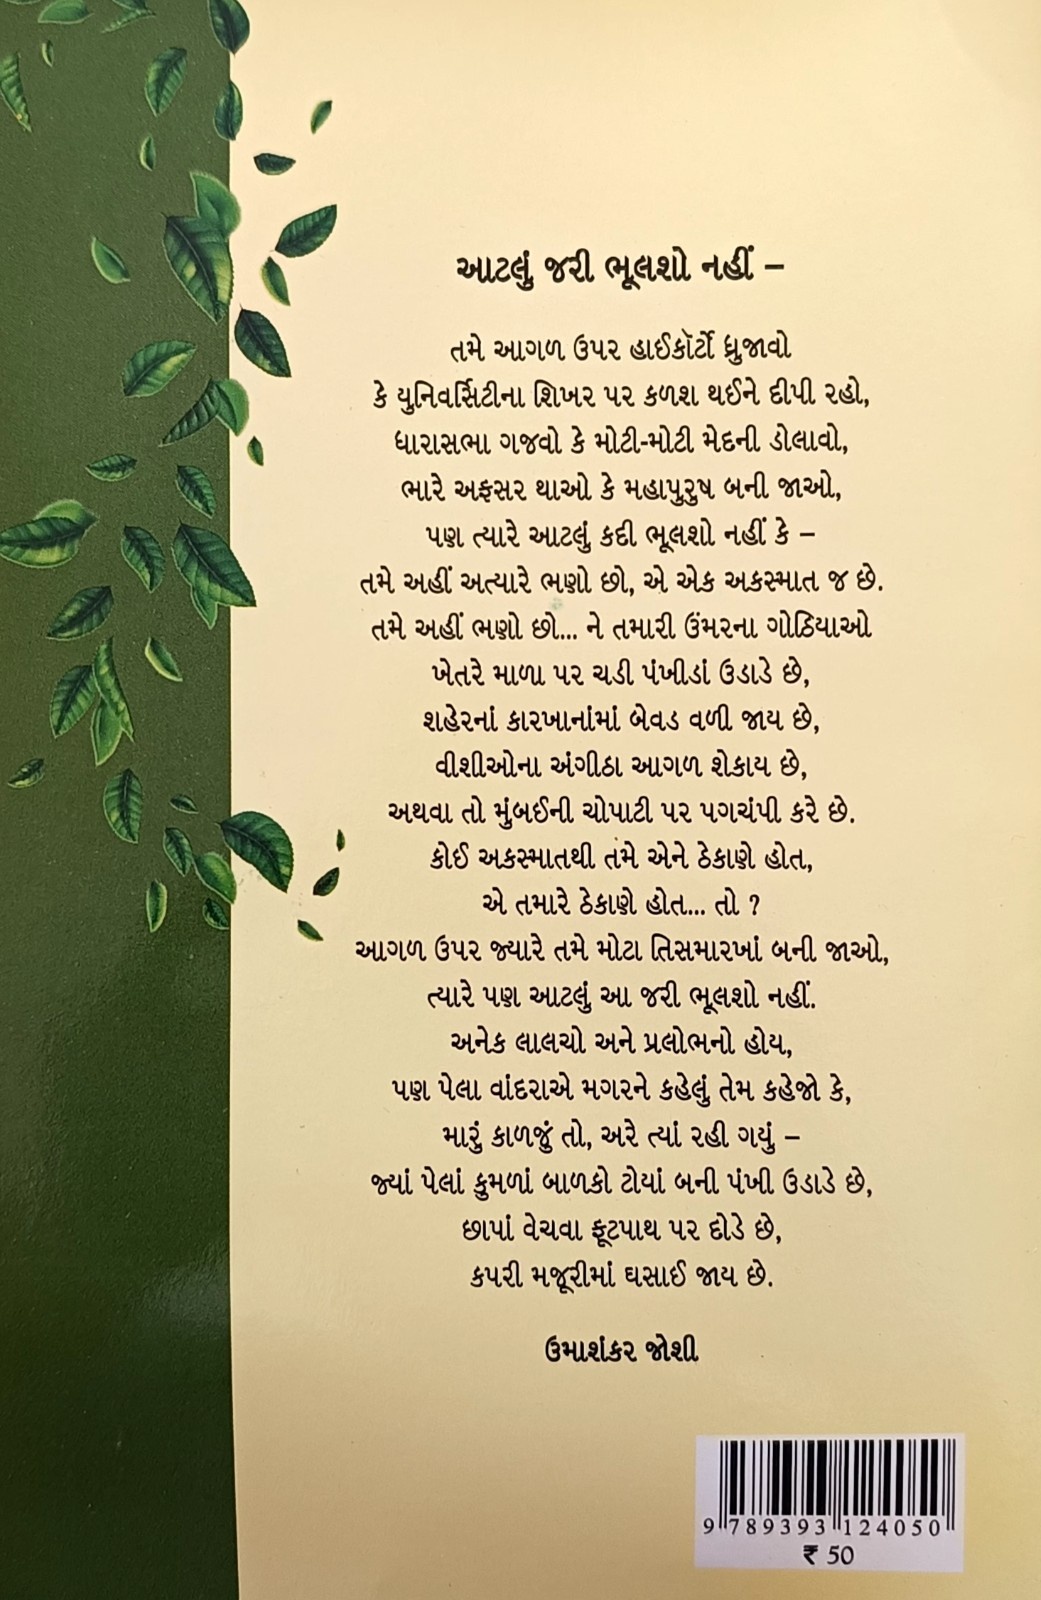 આટલું જરી ભૂલશો નહીં –
તમે આગળ ઉપર હાઈકૉર્ટો ધ્રુજાવો
કે યુનિવર્સિટીના શિખર પર કળશ થઈને દીપી રહો,
ધારાસભા ગજવો કે મોટી-મોટી મેદની ડોલાવો,
ભારે અફસર થાઓ કે મહાપુરુષ બની જાઓ,
પણ ત્યારે આટલું કદી ભૂલશો નહીં કે –
તમે અહીં અત્યારે ભણો છો, એ એક અકસ્માત જ છે.
તમે અહીં ભણો છો... ને તમારી ઉંમરના ગોઠિયાઓ
ખેતરે માળા પર ચડી પંખીડાં ઉડાડે છે,
શહેરનાં કારખાનાંમાં બેવડ વળી જાય છે,
વીશીઓના અંગીઠા આગળ શેકાય છે,
અથવા તો મુંબઈની ચોપાટી પર પગચંપી કરે છે.
કોઈ અકસ્માતથી તમે એને ઠેકાણે હોત,
એ તમારે ઠેકાણે હોત... તો ?
આગળ ઉપર જ્યારે તમે મોટા તિસમારખાં બની જાઓ,
ત્યારે પણ આટલું આ જરી ભૂલશો નહીં.
અનેક લાલચો અને પ્રલોભનો હોય,
પણ પેલા વાંદરાએ મગરને કહેલું તેમ કહેજો કે,
મારું કાળજું તો, અરે ત્યાં રહી ગયું –
જ્યાં પેલાં કુમળાં બાળકો ટોયાં બની પંખી ઉડાડે છે,
છાપાં વેચવા ફૂટપાથ પર દોડે છે,
કપરી મજૂરીમાં ઘસાઈ જાય છે.
ઉમાશંકર જોશી
9 789393 124050
₹ 50